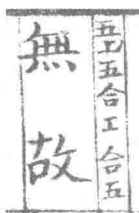 五五合工合五
無故